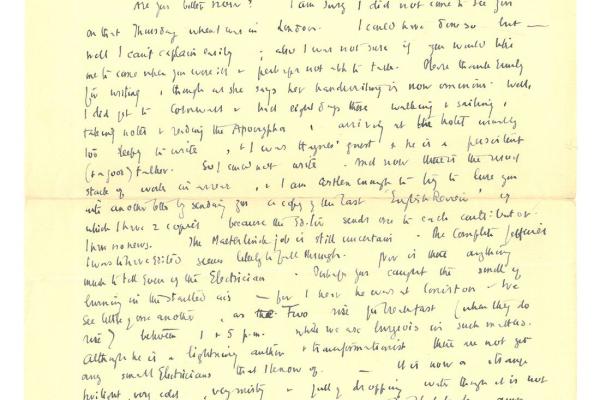 Are you better now? I am sorry I did not come to see you
on that Thursday when I was in London. I could have done so but —
well I can't explain easily; also I was not sure if you would like
me to come when you were ill & perhaps not able to talk. Please thank Emily
for writing, though as she says her handwriting is now ominous. Well,
I did get to Cornwall & had eight days there walking & sailing,
taking notes & reading the Apocrypha, arriving at the hotel usually
too sleepy to write, & I was Haynes' guest & he is a persistent
(& good) talker. So I could not write. And now there is the usual
stack of work in arrear, & I am artless enough to try to lure you
into another letter by sending you a copy of the last 'English Review' of
which I have 2 copies because the Editor sends one to each contributor.
I have no news. The Maeterlinck job is still uncertain. The complete Jefferies
I was to have edited seems likely to fall through. Nor is there anything
much to tell even of the Electrician. Perhaps you caught the smell of
burning in the startled air — for I hear he was at Coniston. We
see little of one another, as the Two rise for breakfast (when they do
rise) between 1 & 5 p.m. while we are burgeois in such matters.
Although he is a lightning author & transformationist there are not yet
any small Electricians that I know of. — It is now a strange
brilliant, very cold, very misty & full of dropping wet though it is not